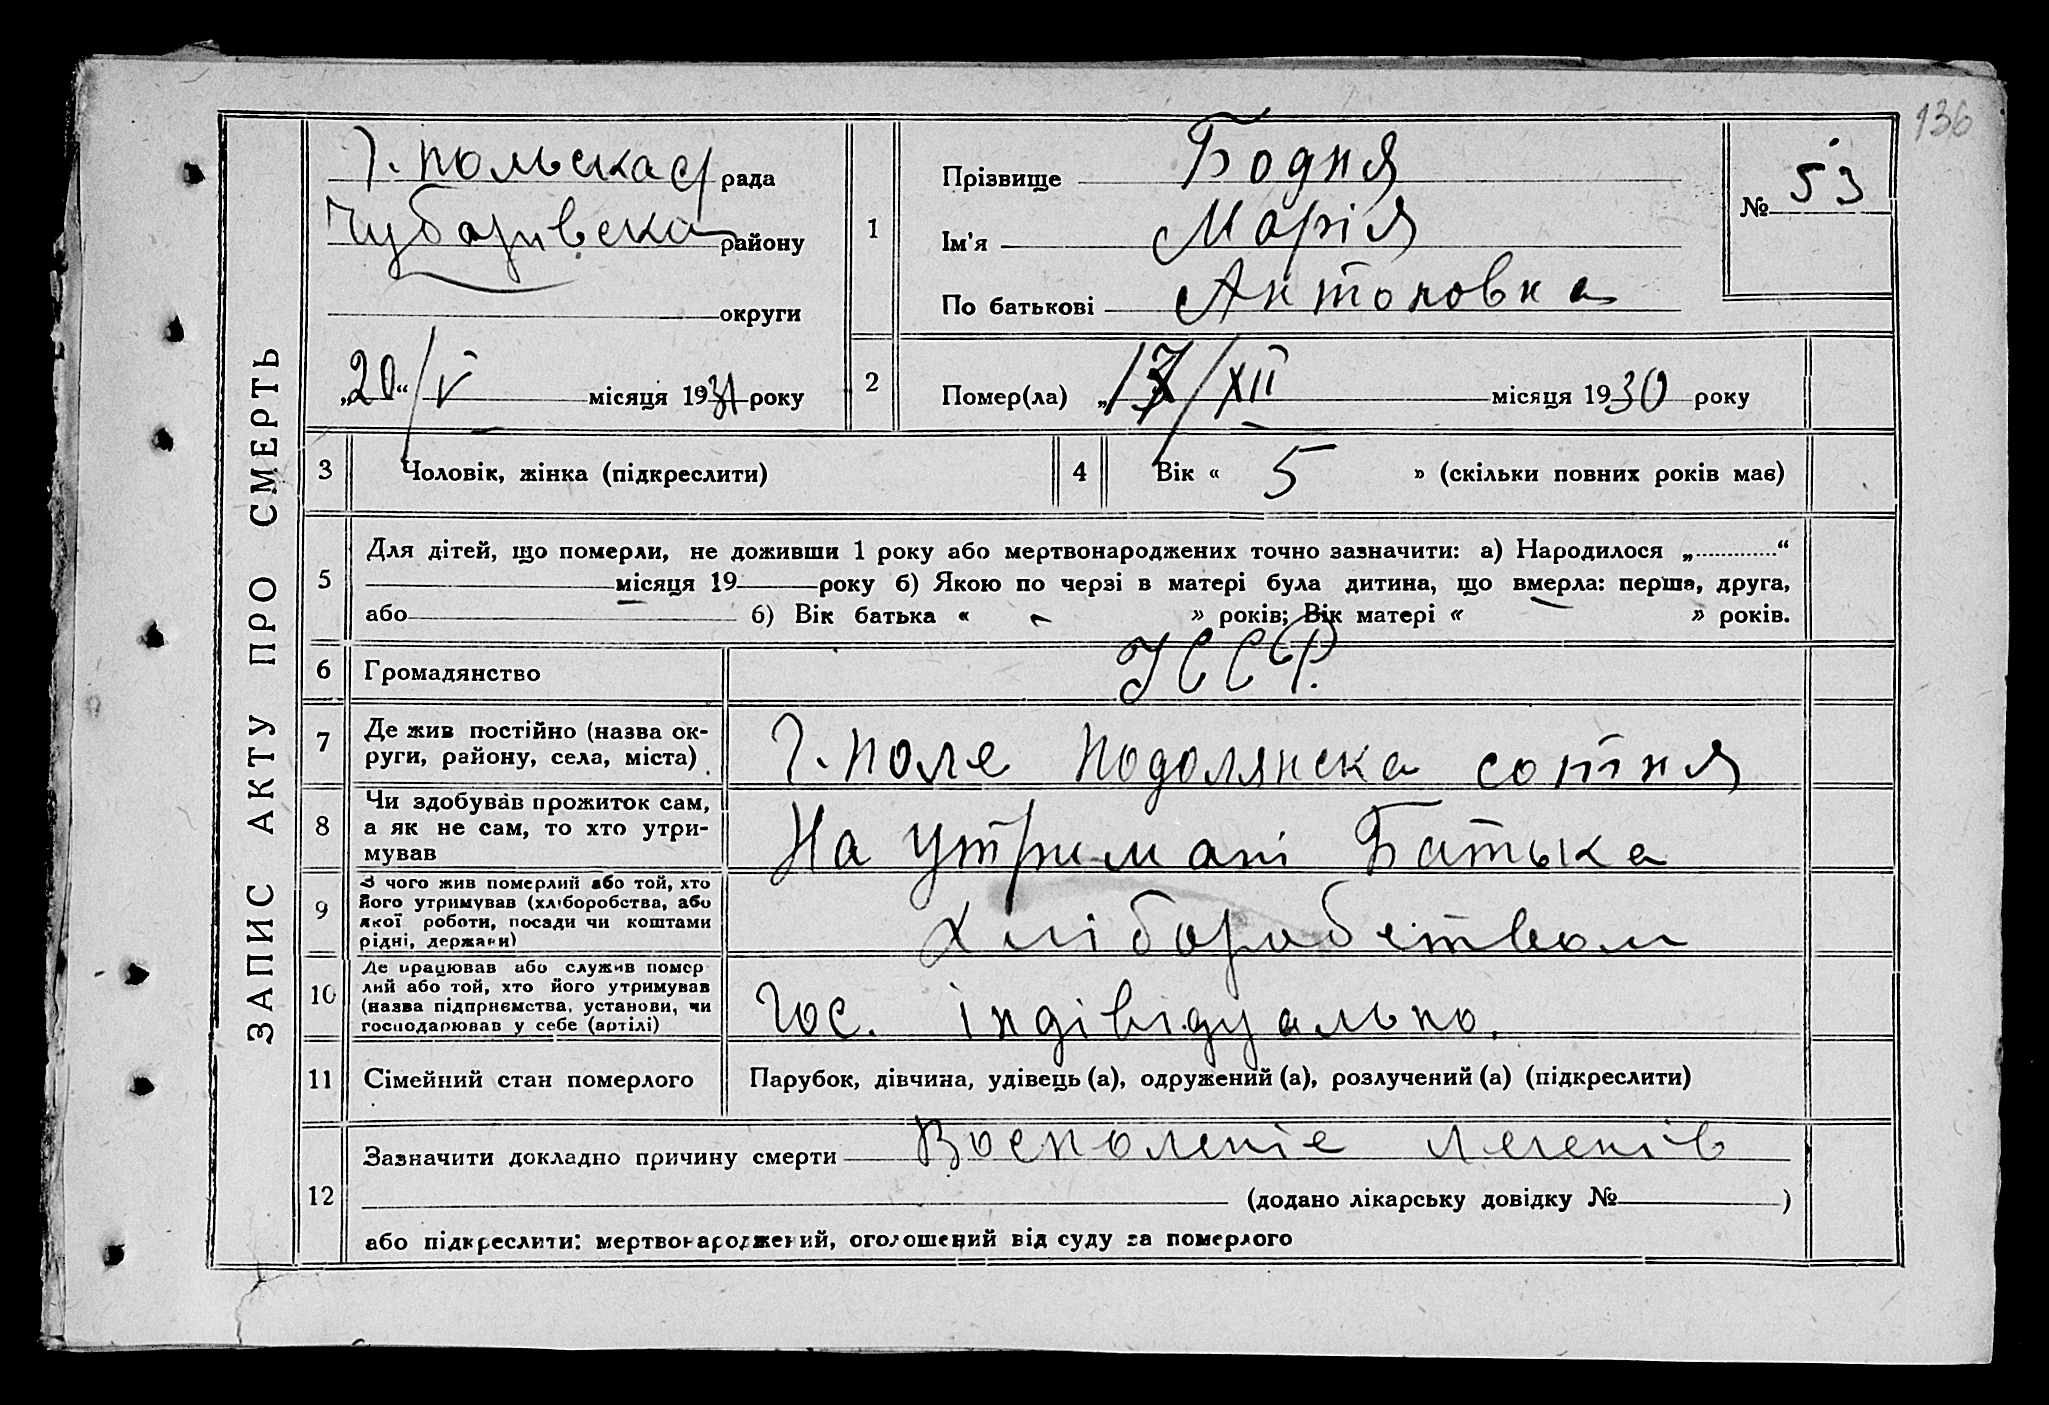 136
ЗАПИС АКТУ ПРО СМЕРТЬ
Г. польска с/рада
Чубарівська району
округи
„20“/V місяця 1931 року
1
Прізвище Бодня
Ім'я Марія
По батькові Антоновна
№ 53
2 Помер(ла) „17/XII місяця 1930 року
3 Чоловік, жінка (підкреслити)
4 Вік « 5 » (скільки повних років має)
5 Для дітей, що померли, не доживши 1 року або мертвонароджених точно зазначити: а) Народилося „ “
місяця 19 року б) Якою по черзі в матері була дитина, що вмерла: перша, друга,
або б) Вік батька « - » років; Вік матері « » років.
6 Громадянство УССР.
7 Де жив постійно (назва ок-
руги, району, села, міста)
Г. поле Подолянска сотня
8 Чи здобував прожиток сам,
а як не сам, то хто утри-
мував
На утримані Батька
9 З чого жив померлий або той, хто
його утримував (хліборобства, або
якої роботи, посади чи коштами
рідні, держави)
Хліборобством
10 Де працював або служив помер
лий або той, хто його утримував
(назва підприємства, установи, чи
господарював у себе (артілі)
Гос. індівідуально.
11 Сімейний стан померлого Парубок, дівчина, удівець (а), одружений (а), розлучений (а) (підкреслити)
12 Зазначити докладно причину смерти Восполеніе легенів
(додано лікарську довідку № )
або підкреслити: мертвонароджений, оголошений від суду за померлого